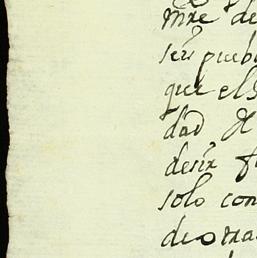 mre de
seis pueb
que el S
dad de
desir
solo con
de otra